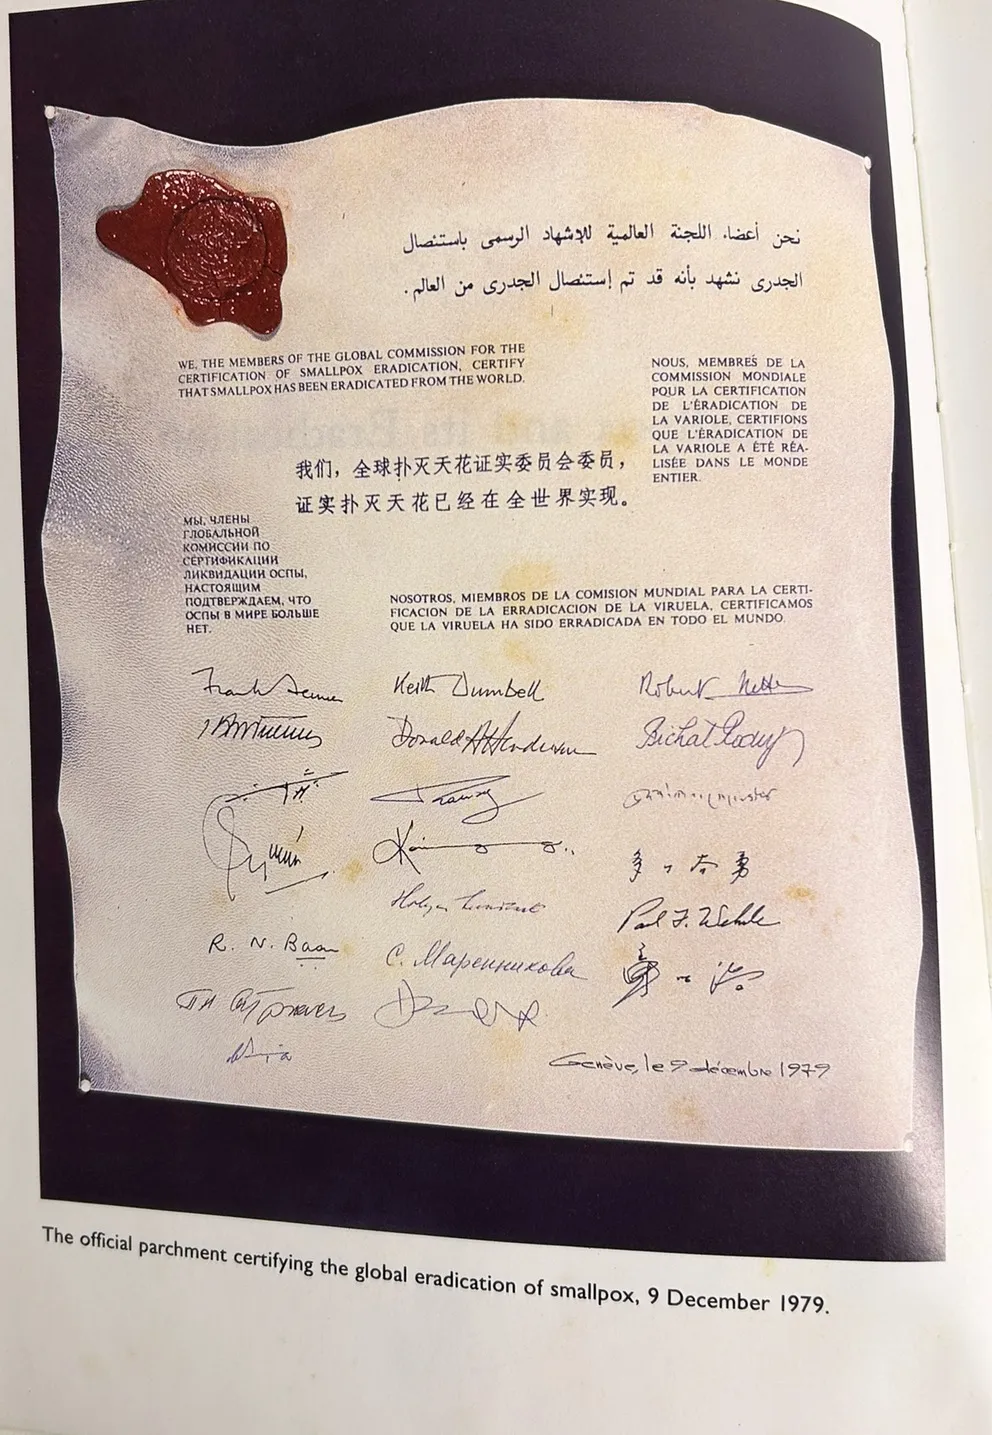 نحن أعضاء اللجنة العالمية للإشهاد الرسمى باستئصال
الجدرى نشهد بأنه قد تم إستئصال الجدرى من العالم.
WE, THE MEMBERS OF THE GLOBAL COMMISSION FOR THE
CERTIFICATION OF SMALLPOX ERADICATION, CERTIFY
THAT SMALLPOX HAS BEEN ERADICATED FROM THE WORLD.
NOUS, MEMBRES DE LA
COMMISSION MONDIALE
POUR LA CERTIFICATION
DE L'ÉRADICATION DE
LA VARIOLE, CERTIFIONS
QUE L'ÉRADICATION DE
LA VARIOLE A ÉTÉ RÉA-
LISÉE DANS LE MONDE
ENTIER.
我们，全球扑灭天花证实委员会委员，
证实扑灭天花已经在全世界实现。
МЫ, ЧЛЕНЫ
ГЛОБАЛЬНОЙ
КОМИССИИ ПО
СЕРТИФИКАЦИИ
ЛИКВИДАЦИИ ОСПЫ,
НАСТОЯЩИМ
ПОДТВЕРЖДАЕМ, ЧТО
ОСПЫ В МИРЕ БОЛЬШЕ
НЕТ.
NOSOTROS, MIEMBROS DE LA COMISION MUNDIAL PARA LA CERTI-
FICACION DE LA ERRADICACION DE LA VIRUELA, CERTIFICAMOS
QUE LA VIRUELA HA SIDO ERRADICADA EN TODO EL MUNDO.
Frank Fenner
Keith Dumbell
Robert Netter
Donald A Henderson
Bichat Rodrigues
Paul F. Wehrle
R. N. Basu
С. Маренникова
Genève, le 9 décembre 1979
The official parchment certifying the global eradication of smallpox, 9 December 1979.